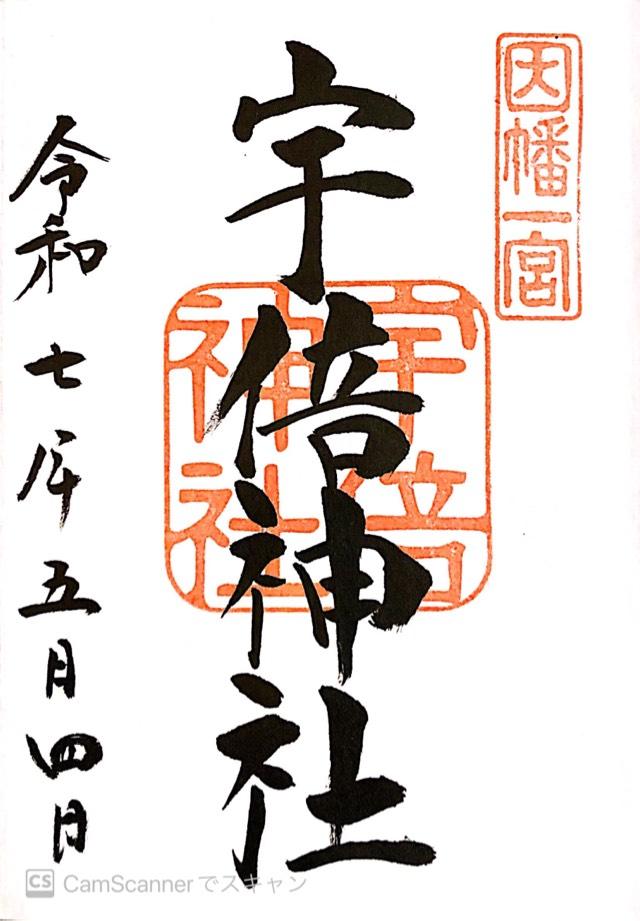 因幡一宮
宇倍神社
宇倍
神社
令和七年五月四日
CS CamScannerでスキャン